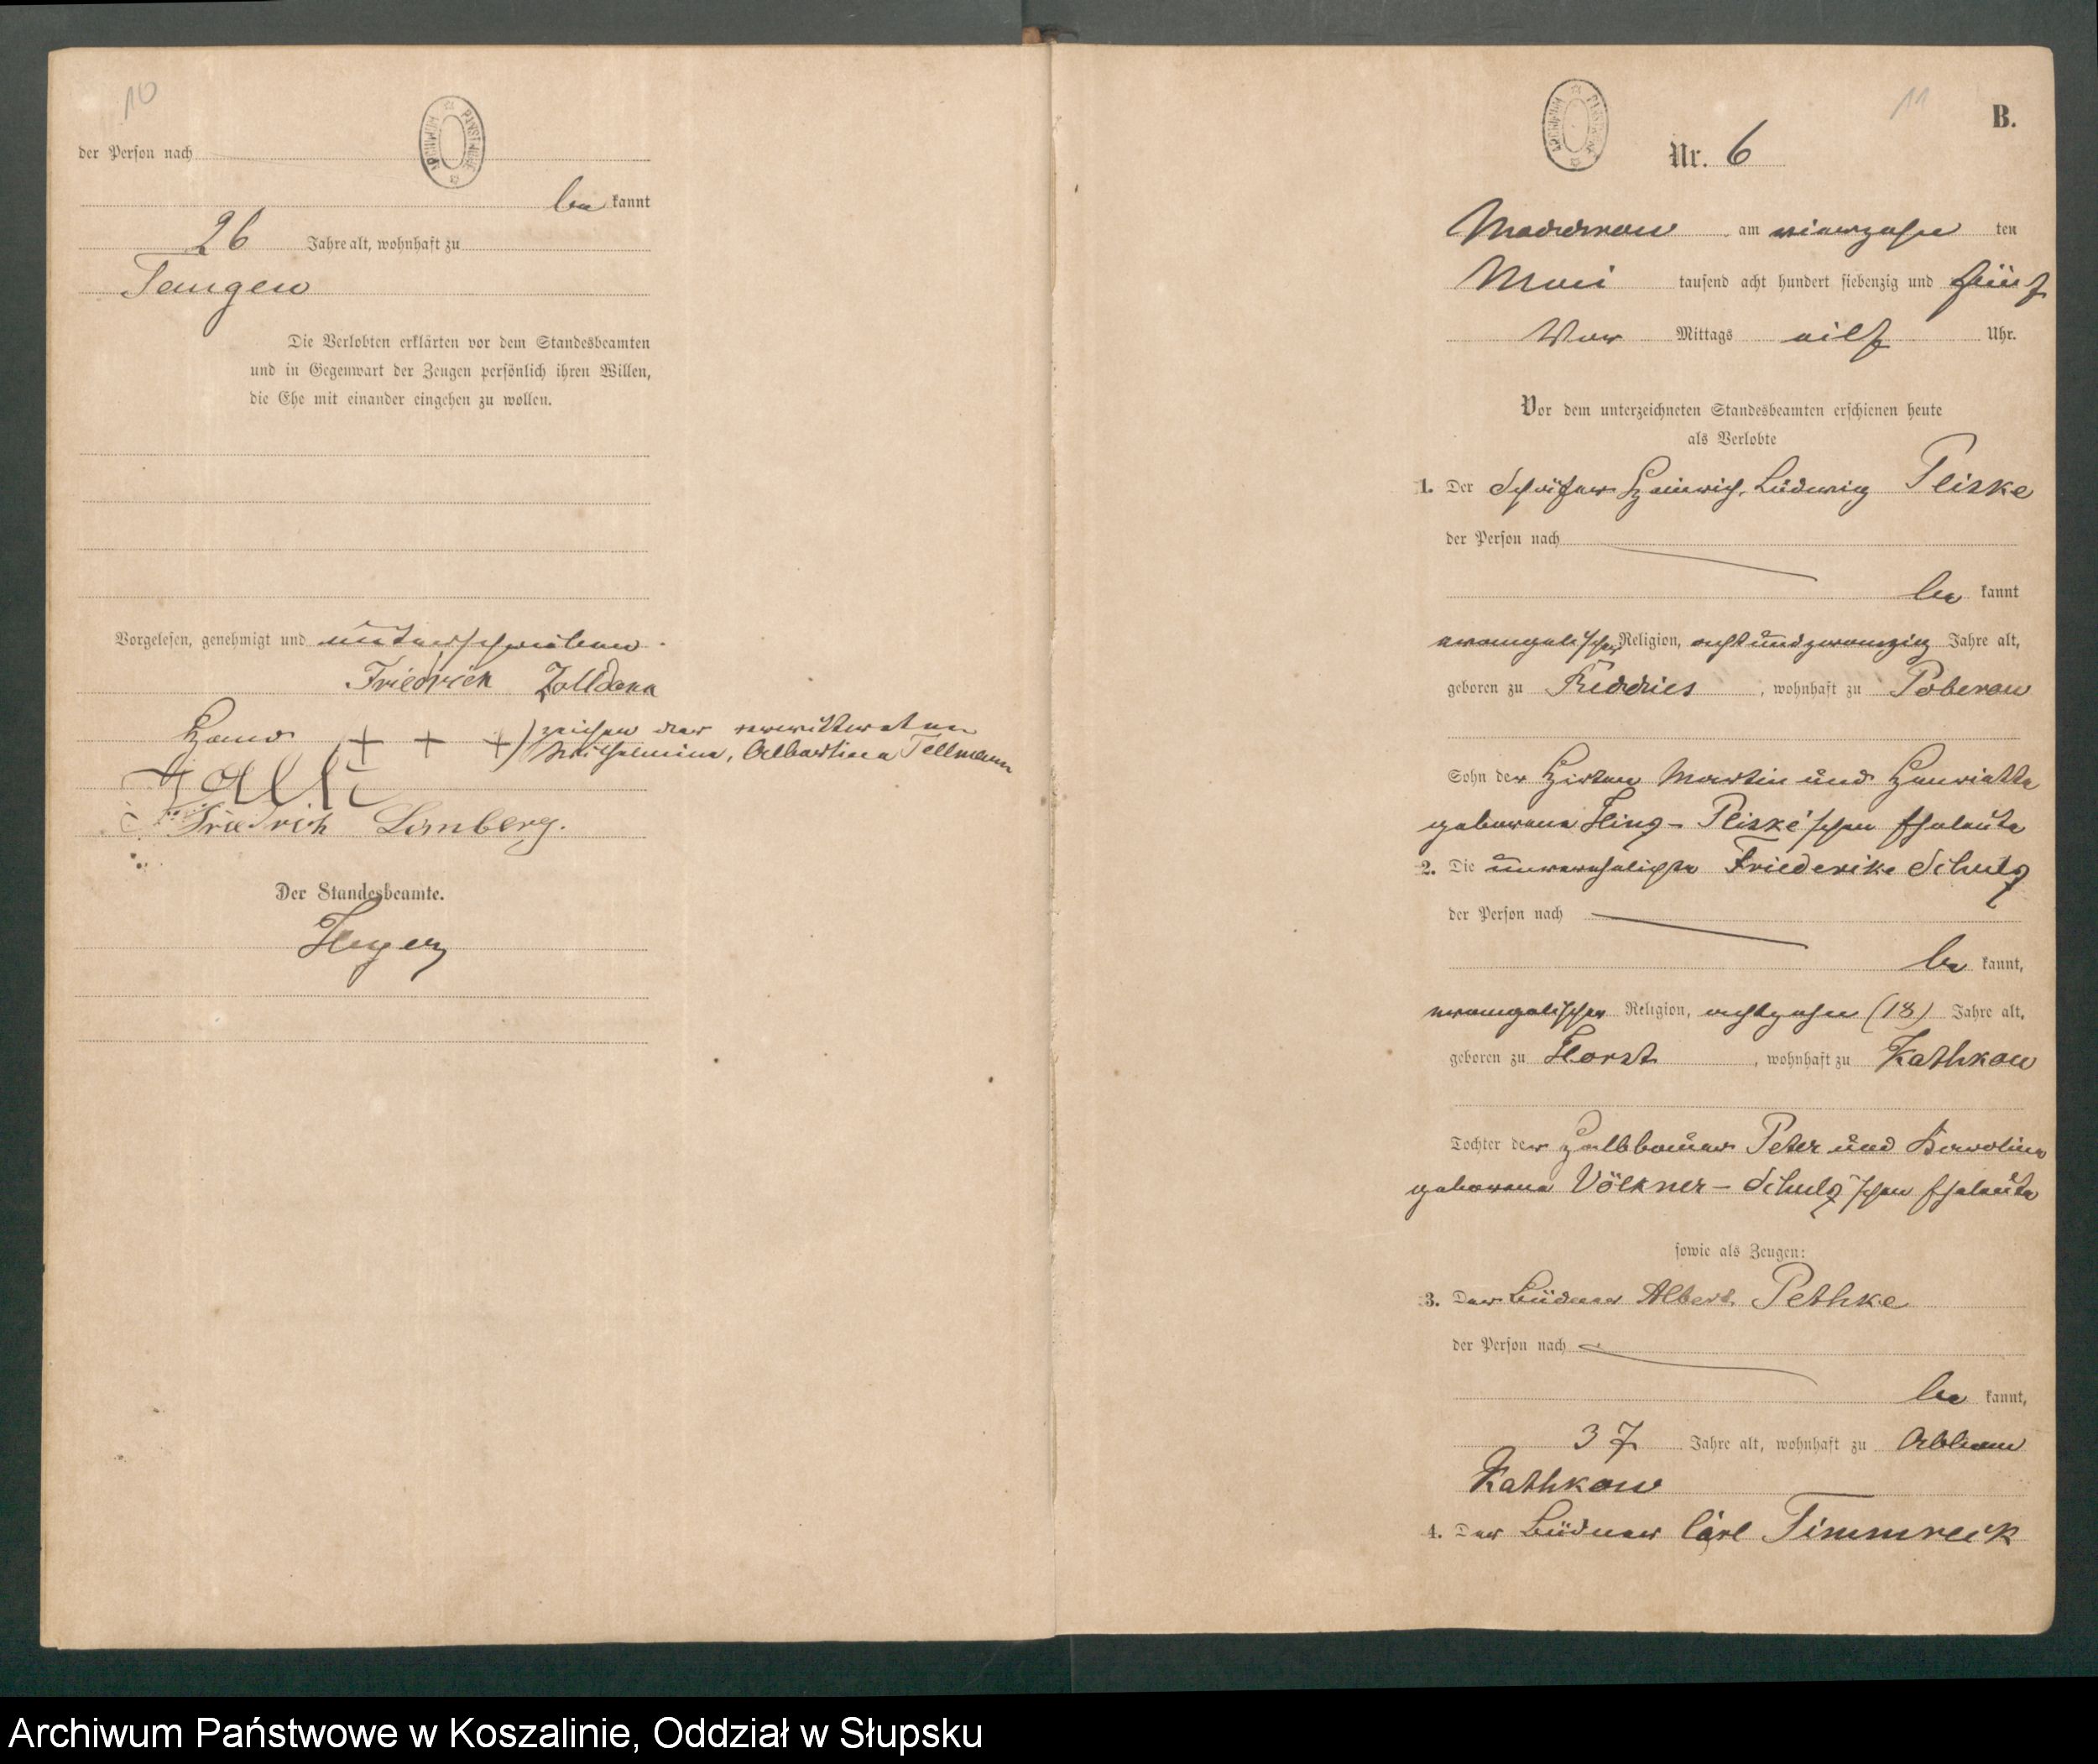 10
der Person nach
be kannt
26 Jahre alt, wohnhaft zu
Tangen
Die Verlobten erklärten vor dem Standesbeamten
und in Gegenwart der Zeugen persönlich ihren Willen,
die Ehe mit einander eingehen zu wollen.
Vorgelesen, genehmigt und unterschrieben.
Friedrich
Hand + + +) zeichen der verwittweten
Wilhelmine, Albertine Tellmann
Friedrich Limberg.
Der Standesbeamte.
ARCHIWUM PAŃSTWOWE
11
B.
Nr. 6
am vierzehn ten
Mai tausend acht hundert siebenzig und fünf
Vor Mittags eilf Uhr.
Vor dem unterzeichneten Standesbeamten erschienen heute
als Verlobte
1. Der Schäfer Heinrich Ludwig Pliske
der Person nach
be kannt
evangelischer Religion, achtundzwanzig Jahre alt,
geboren zu Reddies, wohnhaft zu Poberow
Sohn der Hirten Martin und Henriette
geborene Pliske'schen Eheleute
2. Die unverehelichte Friederike Schulz
der Person nach
be kannt,
evangelischer Religion, achtzehn (18) Jahre alt,
geboren zu Horst, wohnhaft zu Kathkow
Tochter der Halbbauer Peter und Karoline
geborene Völkner - Schulz'schen Eheleute
sowie als Zeugen:
3. Der Büdner Albert Pethke
der Person nach
be kannt,
37 Jahre alt, wohnhaft zu Abbau
Kathkow
4. Der Büdner Carl Timmreck
Archiwum Państwowe w Koszalinie, Oddział w Słupsku